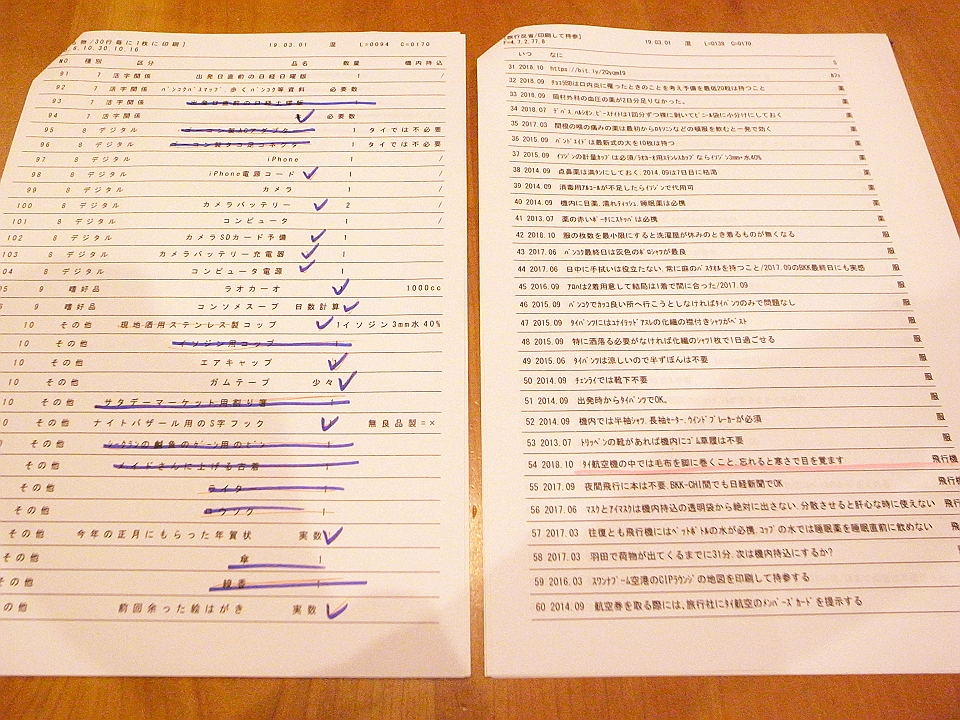 物/30行毎に1枚に印刷] 19.03.01 混 L=0094 C=0170
6.10.30.10.16
NO 種別 区分 品名 数量 機内持込
91 7 活字関係 出発日直前の日経日曜版 1 /
92 7 活字関係 必要数
93 7 活字関係 1
94 7 活字関係 必要数
95 8 デジタル 1 タイでは不必要
96 8 デジタル 1 タイでは不必要
97 8 デジタル iPhone 1 /
98 8 デジタル iPhone電源コード 1 /
99 8 デジタル カメラ 1 /
100 8 デジタル カメラバッテリー 2 /
101 8 デジタル コンピュータ 1 /
102 8 デジタル カメラSDカード予備 1
103 8 デジタル カメラバッテリー充電器 1
04 8 デジタル コンピュータ電源 1
05 9 嗜好品 ラオカーオ 1000cc
9 嗜好品 コンソメスープ 日数計算
10 その他 現地酒用ステンレス製コップ 1イソジン3mm水40%
10 その他 イソジン用コップ 1
10 その他 エアキャップ 1
10 その他 ガムテープ 少々
10 その他 サタデーマーケット用割り箸 1
0 その他 ナイトバザール用のS字フック 無良品製=×
その他 1
その他 メイドさんに上げる古着
その他 ライタ 1
その他 ロウソク 1
その他 今年の正月にもらった年賀状 実数
その他 傘 1
その他 線香 1
の他 前回余った絵はがき 実数
旅行反省/印刷して持参] 19.03.01 混 L=0138 C=0170
F=4,7,2,77,8
いつ なに
31 2018.10 https://bit.ly/2Qyqml9
32 2018.09 チョコラBBは口内炎に罹ったときのことを考え予備を最低20粒は持つこと 薬
33 2018.09 岡村外科の血圧の薬が2日分足りなかった。 薬
34 2018.07 デパス、ハルシオン、ビーナイトは1回分ずつ裸に剥いてビニール袋に小分けにしておく 薬
35 2017.03 関根の喉の痛みの薬は最初からロキソニンなどの頓服を飲むと一発で効く 薬
36 2015.09 バンドエイドは最新式の大を10枚は持つ 薬
37 2015.09 イソジンの計量カップは必須/ラオカーオ用ステンレスカップならイソジン3mm・水40% 薬
38 2014.09 点鼻薬は満タンにしておく、2014.09は7日目に枯渇 薬
39 2014.09 消毒用アルコールが不足したらイソジンで代用可 薬
40 2014.09 機内に目薬、濡れティッシュ、睡眠薬は必携 薬
41 2013.07 薬の赤いポーチにストッパは必携 薬
42 2018.10 服の枚数を最小限にすると洗濯屋が休みのとき着るものが無くなる 服
43 2017.06 バンコク最終日は灰色のポロシャツが最良 服
44 2017.06 日中に手拭いは役立たない、常に麻のバスタオルを持つこと/2017.09のBKK最終日にも実感 服
45 2016.09 アロハは2着用意して結局は1着で間に合った/2017.09 服
46 2015.09 バンコクでカッコ良い所へ行こうとしなければタイパンツのみで問題なし 服
47 2015.09 タイパンツにはユナイテッドアスレの化繊の襟付きシャツがベスト 服
48 2015.09 特に洒落る必要がなければ化繊のシャツ1枚で1日過ごせる 服
49 2015.06 タイパンツは涼しいので半ずぼんは不要 服
50 2014.09 チェンライでは靴下不要 服
51 2014.09 出発時からタイパンツでOK。 服
52 2014.09 機内では半袖シャツ、長袖セーター、ウインドブレーカーが必須 服
53 2013.07 トリッペンの靴があれば機内にゴム草履は不要 服
54 2018.10 タイ航空機の中では毛布を脚に巻くこと、忘れると寒さで目を覚ます 飛行機
55 2017.09 夜間飛行に本は不要、BKK-CHI間でも日経新聞でOK 飛行
56 2017.06 マスクとアイマスクは機内持込の透明袋から絶対に出さない、分散させると肝心な時に使えない 飛行
57 2017.03 往復とも飛行機にはペットボトルの水が必携、コップの水では睡眠薬を睡眠直前に飲めない 飛
58 2017.03 羽田で荷物が出てくるまでに31分、次は機内持込にするか?
59 2016.03 スワンナプーム空港のCIPラウンジの地図を印刷して持参する
60 2014.09 航空券を取る際には、旅行社にタイ航空のメンバーズカードを提示する